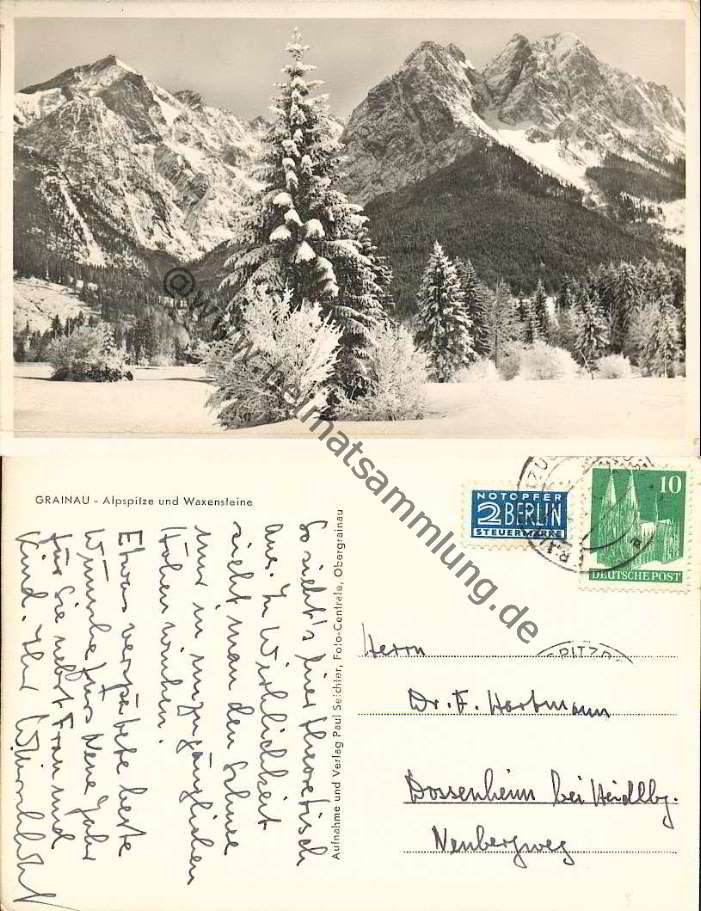 © www.heimatsammlung.de
GRAINAU - Alpspitze und Waxensteine
So sieht's hier theoretisch
aus. In Wirklichkeit
sieht man den Schnee
nur in unzugänglichen
Höhen winken.
Etwas verspätete beste
Wünsche fürs Neue Jahr
für Sie nebst Frau und
Kind. Ihr
Aufnahme und Verlag Paul Seichter, Foto-Centrale, Obergrainau
NOTOPFER
2 BERLIN
STEUERMARKE
10
DEUTSCHE POST
Herrn
Dr. F. Hartmann
Dossenheim bei Heidlbg.
Neubergweg